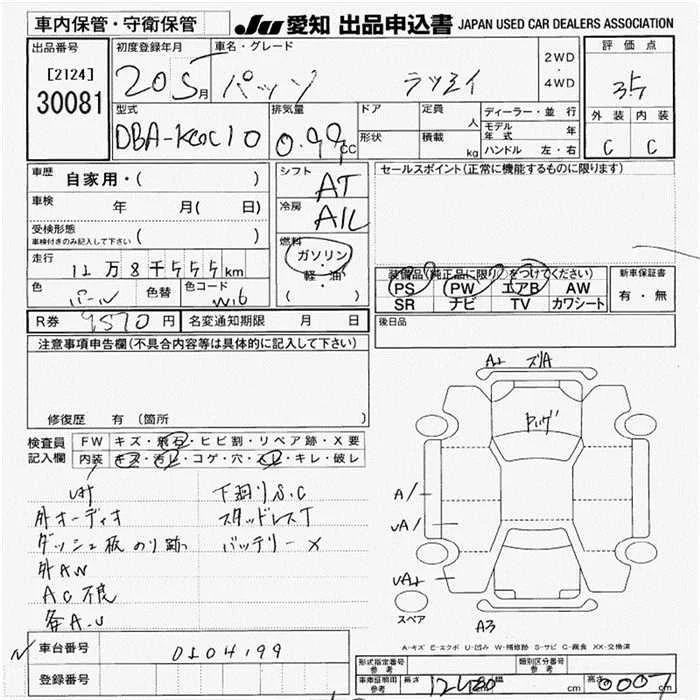 車内保管・守衛保管 JU 愛知 出品申込書 JAPAN USED CAR DEALERS ASSOCIATION
出品番号 初度登録年月 車名・グレード 2WD・4WD 評価点
[2124]
30081
20 5月 パッソ ラツミイ 35
型式 排気量 ドア 定員 人 ディーラー・並行 外装 内装
DBA-KGC10 0.99 cc 形状 積載 kg モデル年式 年 C C
ハンドル 左・右
車歴 自家用・( ) シフト AT セールスポイント(正常に機能するものに限ります)
車検 年 月( 日) 冷房 A/C
受検形態 ( )
車検付きのみ記入して下さい
燃料 ガソリン・軽油・( )
走行 12万8千555km
装備品(純正品に限り)○をつけてください 新車保証書
色 パール 色替 色コード W16 PS PW エアB AW 有・無
SR ナビ TV カワシート
R券 9570円 名変通知期限 月 日 後日品
注意事項申告欄(不具合内容等は具体的に記入して下さい)
修復歴 有 (箇所
検査員記入欄 FW キズ・飛石・ヒビ割・リペア跡・X要
内装 キズ・汚レ・コゲ・穴・スレ・キレ・破レ
下廻りS.C
外オーディオ スタッドレスT
ダッシュ板のり跡 バッテリーX
外AW
AC不良
各A.U
A2 ズリA
A/
UA/
UA2
スペア
A3
A-キズ E-エクボ U-凹み W-補修跡 S-サビ C-腐食 XX-交換済
車台番号 0204199
登録番号
形式指定番号 参考 類別区分番号 参考
車庫証明用 参考 長さ cm 幅 cm 高さ cm